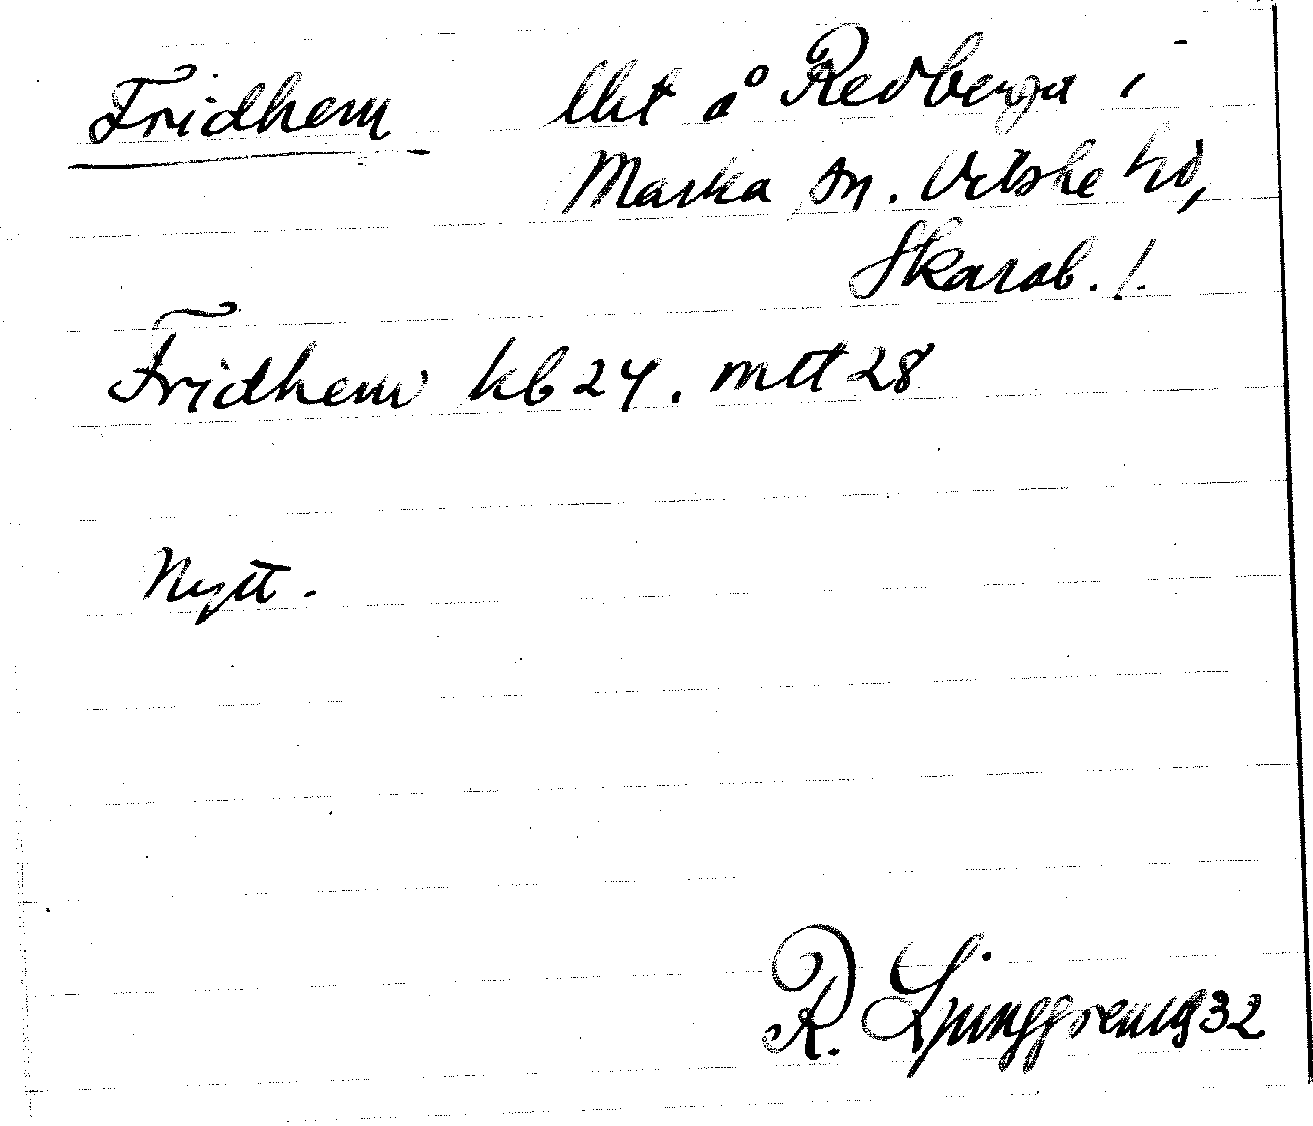 Fridhem lht å Redberga i
Marka sn. Vilske hd,
Skarab. l.
Fridhem kb 24. mtt 28
Nytt.
R. Ljunggren 1932